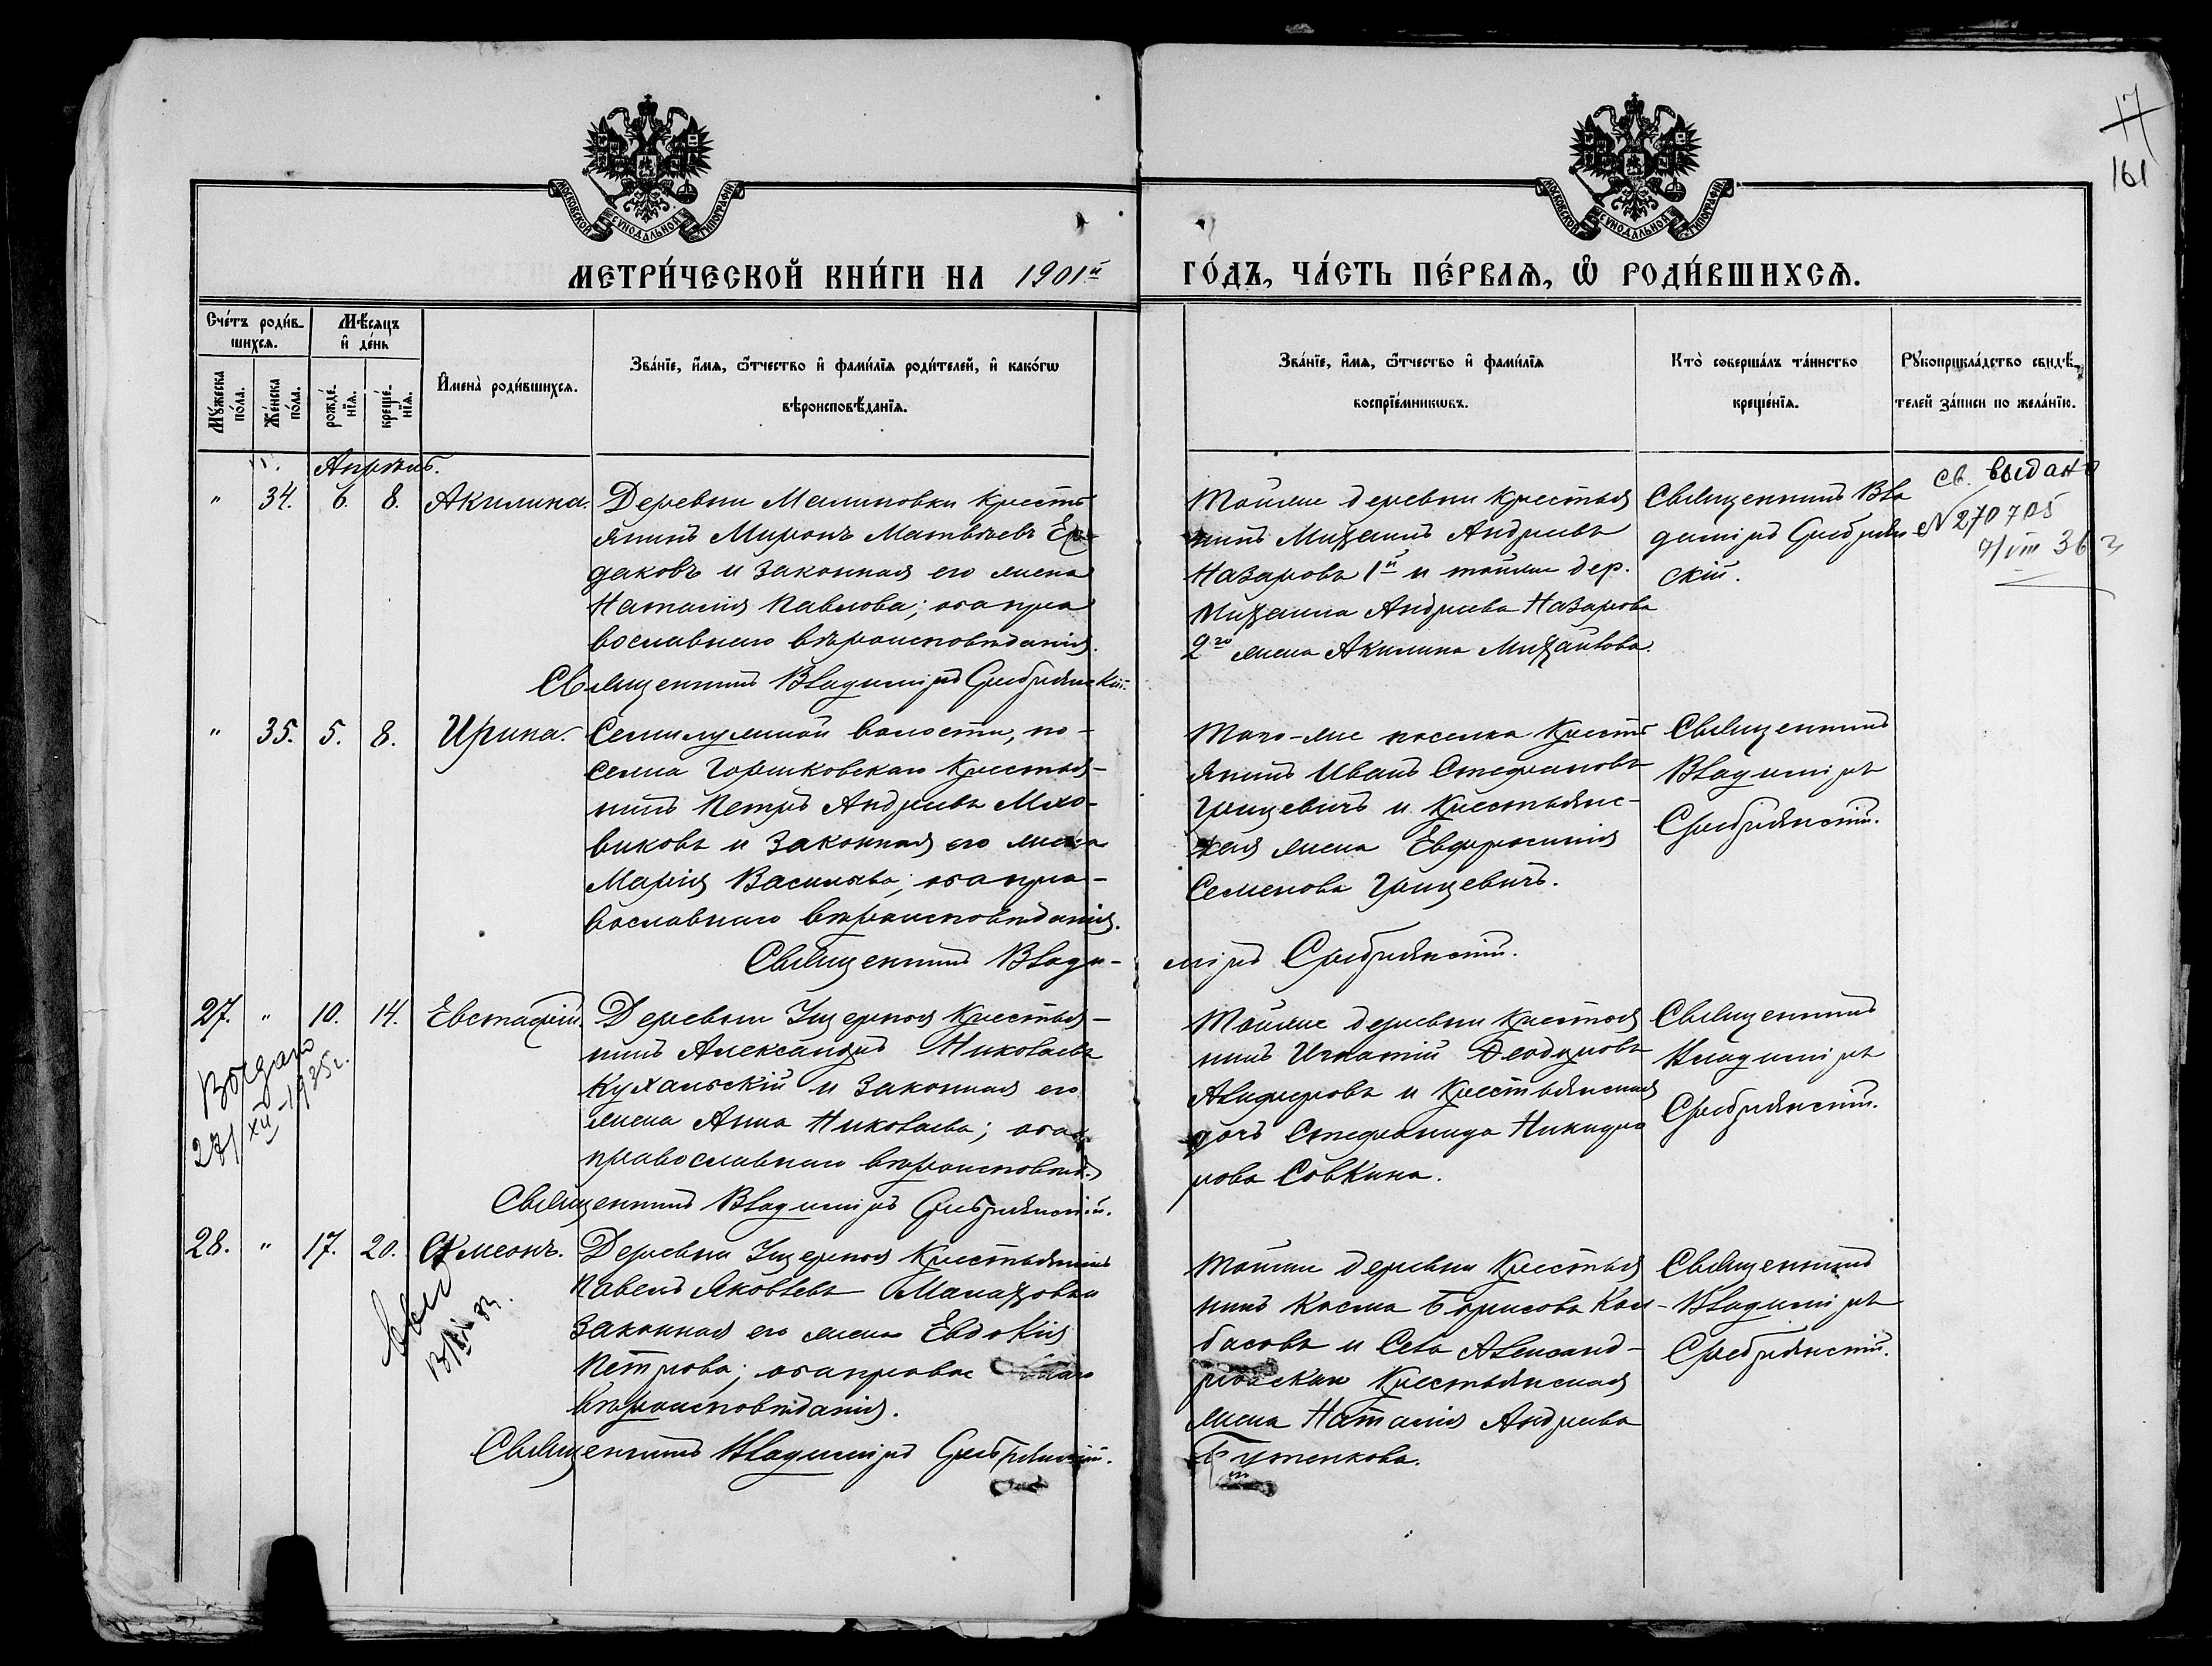 17
161
МОСКОВСКОЙ СУНОДАЛЬНОЙ ТИПОГРАФІИ
МОСКОВСКОЙ СУНОДАЛЬНОЙ ТИПОГРАФІИ
МЕТРИ́ЧЕСКОЙ КНИ́ГИ НА 1901й ГО́ДЪ, ЧА́СТЬ ПЕ́РВАѦ, Ѽ РОДИ́ВШИХСѦ.
Сче́тъ роди́в-
шихсѧ.
Мꙋ́жеска
по́ла.
Же́нска
по́ла.
Мѣ́сѧцъ
и҆ де́нь
рожде́-
нїѧ.
креще́-
нїѧ.
И҆мена̀ роди́вшихсѧ.
Зва́нїе, и҆́мѧ, ѻ҆́тчество и҆ фами́лїѧ роди́телей, и҆ како́гѡ
вѣроисповѣ́данїѧ.
Зва́нїе, и҆́мѧ, ѻ҆́тчество и҆ фами́лїѧ
воспрїе́мникѡвъ.
Кто̀ соверша́лъ та́инство
креще́нїѧ.
Рꙋкоприкла́дство свидѣ́-
телей за́писи по жела́нїю.
Апрѣль.
" 34. 6. 8. Акилина.
Деревни Малиновки кресть
янинъ Миронъ Матвѣевъ Ер-
даковъ и законная его жена
Наталия Павлова; оба пра
вославнаго вѣроисповѣданія.
Священникъ Владиміръ Сребрянскій.
Тойже деревни крестья
нинъ Михаилъ Андреевъ
Назаровъ 1й и тойже дер.
Михаила Андреева Назарова
2го жена Акилина Михайлова.
Священникъ Вла
диміръ Сребрян
скій.
Св. выдано
N 270705
9/VIII 36 г
" 35. 5. 8. Ирина.
Семилужной волости, по-
селка Горшковскаго крестья-
нинъ Петръ Андреевъ Мяхо-
виковъ и законная его жена
Марія Васильева; оба пра-
вославнаго вѣроисповѣданія.
Священникъ Влади-
міръ Сребрянскій.
Того-же поселка кресть
янинъ Иванъ Стефановъ
Грицевичъ и крестьянс-
кая жена Евфросинія
Семенова Грицевичъ.
Священникъ
Владиміръ
Сребрянскій.
27. " 10. 14. Евстафій.
Выдано
27/XII-1935г.
Деревни Ущерпья крестья-
нинъ Александръ Николаевъ
Кухальскій и законная его
жена Анна Николаева; оба
православнаго вѣроисповѣд.
Священникъ Владиміръ Сребрянскій.
Тойже деревни крестья
нинъ Игнатій Феодоровъ
Алиферовъ и крестьянская
дочь Стефанида Никифо
рова Совкина.
Священникъ
Владиміръ
Сребрянскій.
28. " 17. 20. Симеонъ.
Деревни Ущерпья крестьянинъ
Павелъ Яковлевъ Малаховъ и
законная его жена Евдокія
Петрова; оба правос
вѣроисповѣданія.
Священникъ Владиміръ Сребрянскій.
Тойже деревни крестья
нинъ Косма Борисовъ Кол-
басовъ и Села Александ-
ровскаго крестьянская
жена Наталія Андреева
Бутенкова.
Священникъ
Владиміръ
Сребрянскій.